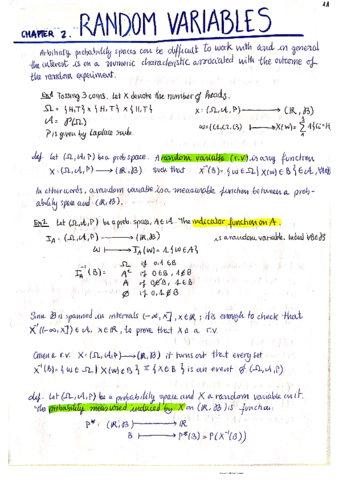 11
CHAPTER 2. RANDOM VARIABLES
Arbitrary probability spaces can be difficult to work with and in general
the interest is on a numeric characteristic associated with the outcome of
the random experiment.
Ex1 Tossing 3 coins. Let X denote the number of heads.
Ω = {H,T} × {H,T} × {H,T} X: (Ω, A, P) → (ℝ, B)
A = P(Ω)
P is given by Laplace rule.
def. Let (Ω, A, P) be a prob space. A random variable (r.v) is any function
X: (Ω, A, P) → (ℝ, B) such that X⁻¹(B) = {ω ∈ Ω | X(ω) ∈ B} ∈ A,
In other words, a random variable is a measurable function between a prob-
ability space and (ℝ, B).
Ex2 Let (Ω, A, P) be a prob. space, A ∈ A. The indicator function on A.
I_A: (Ω, A, P) → (ℝ, B) is a random variable. Indeed ∀B∈B
ω ↦ I_A(ω) = 1{ω ∈ A}
I_A⁻¹(B) = Ω if 0,1 ∈ B
Aᶜ if 0 ∈ B, 1 ∉ B
A if 0 ∉ B, 1 ∈ B
∅ if 0,1 ∉ B
Since B is spanned on intervals (-∞, x], x ∈ ℝ; it is enough to check that
X⁻¹((-∞, x]) ∈ A, x ∈ ℝ, to prove that X is a r.v.
Given a r.v. X: (Ω, A, P) → (ℝ, B) it turns out that every set
X⁻¹(B) = {ω ∈ Ω | X(ω) ∈ B} = {X ∈ B} is an event of (Ω, A, P)
def. Let (Ω, A, P) be a probability space and X a random variable on it.
The probability measured induced by X on (ℝ, B) is function:
Pˣ: (ℝ, B) → ℝ
B ↦ Pˣ(B) = P(X⁻¹(B))